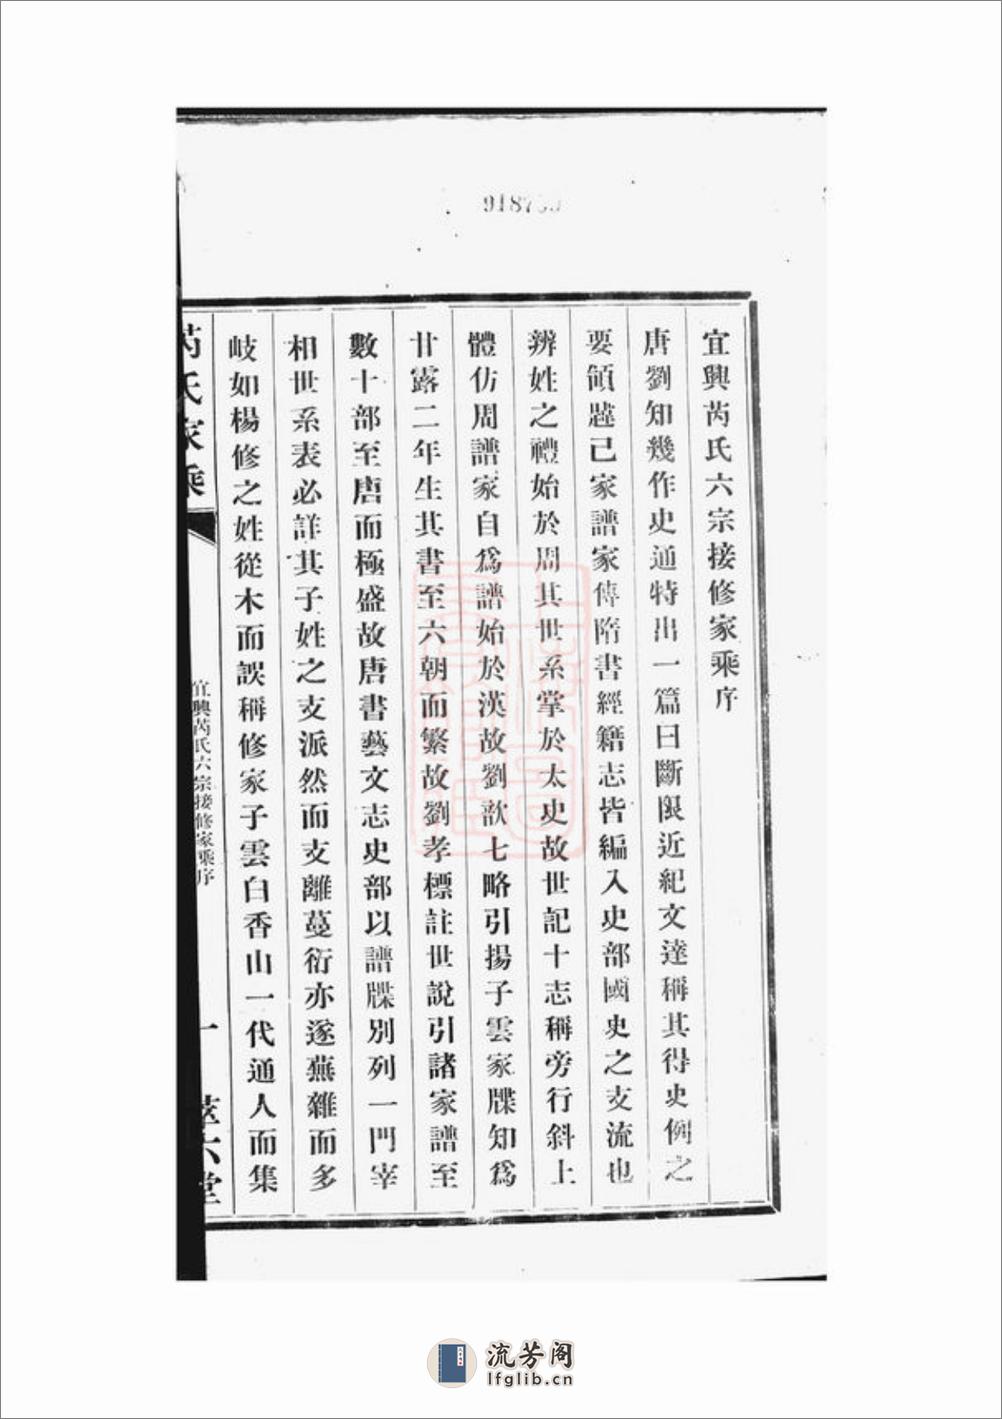 宜興芮氏六宗接修家乘序
唐劉知幾作史通特出一篇曰斷限近紀文達稱其得史例之
要領韙已家譜家傳隋書經籍志皆編入史部國史之支流也
辨姓之禮始於周其世系掌於太史故世記十志稱旁行斜上
體仿周譜家自爲譜始於漢故劉歆七略引揚子雲家牒知爲
甘露二年生其書至六朝而繁故劉孝標註世說引諸家譜至
數十部至唐而極盛故唐書藝文志史部以譜牒別列一門宰
相世系表必詳其子姓之支派然而支離蔓衍亦遂蕪雜而多
岐如楊修之姓從木而誤稱修家子雲白香山一代通人而集
芮氏家乘
宜興芮氏六宗接修家乘序
一
六堂
流芳阁
lfglib.cn